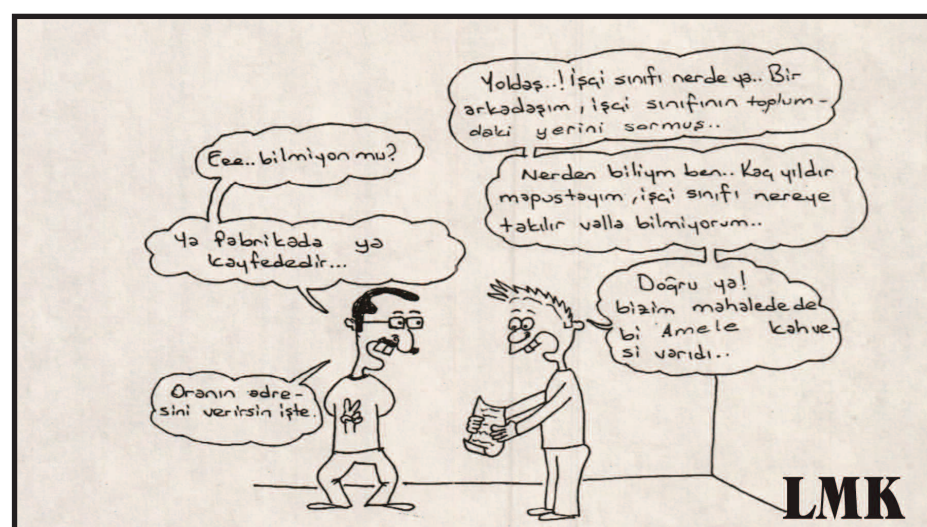 Yoldaş..! İşçi sınıfı nerde ya.. Bir
arkadaşım, işçi sınıfının toplum-
daki yerini sormuş..
Eee.. bilmiyon mu?
Nerden biliym ben.. Kaç yıldır
mapustayım, işçi sınıfı nereye
takılır valla bilmiyorum..
Ya fabrikada ya
kayfededir...
Doğru ya!
bizim mahalede de
bi Amele kahve-
si varıdı..
Oranın adre-
sini verirsin işte.
LMK